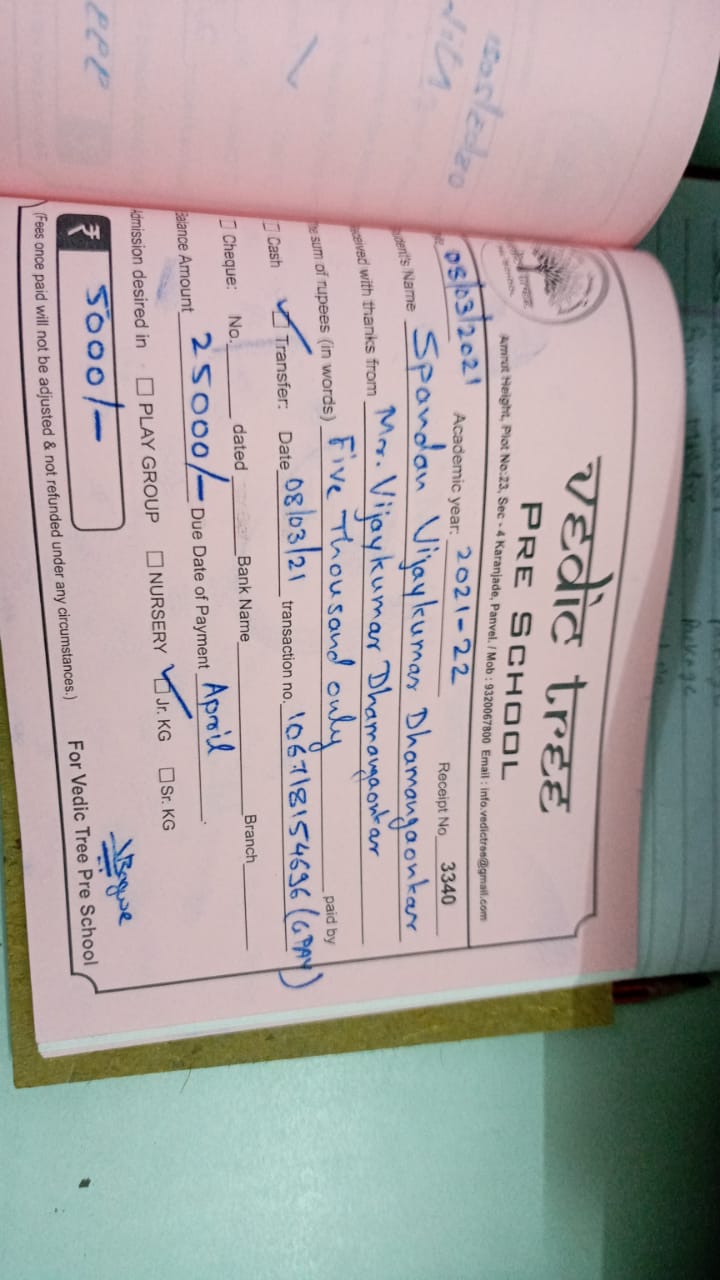 vedic tree
PRE SCHOOL
Amrut Height, Plot No:23, Sec - 4 Karanjade, Panvel. / Mob : 9320067800 Email : info.vedictree@gmail.com
08/03/2021 Academic year: 2021-22 Receipt No 3340
Student's Name Spandan Vijaykumar Dhamangaonkar
Received with thanks from Mr. Vijaykumar Dhamangaonkar
the sum of rupees (in words) Five Thousand only paid by
Cash Transfer: Date 08/03/21 transaction no. 106718154696 (GPAY)
Cheque: No. dated Bank Name Branch
Balance Amount 25000/- Due Date of Payment April
Admission desired in PLAY GROUP NURSERY Jr. KG Sr. KG
₹ 5000/-
For Vedic Tree Pre School
(Fees once paid will not be adjusted & not refunded under any circumstances.)